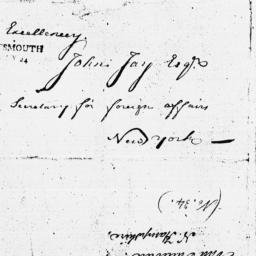 Excellency
SMOUTH
24
John Jay Esqr
Secretary for foreign affairs
New York —
(No. 34.)
N. Hampshire.